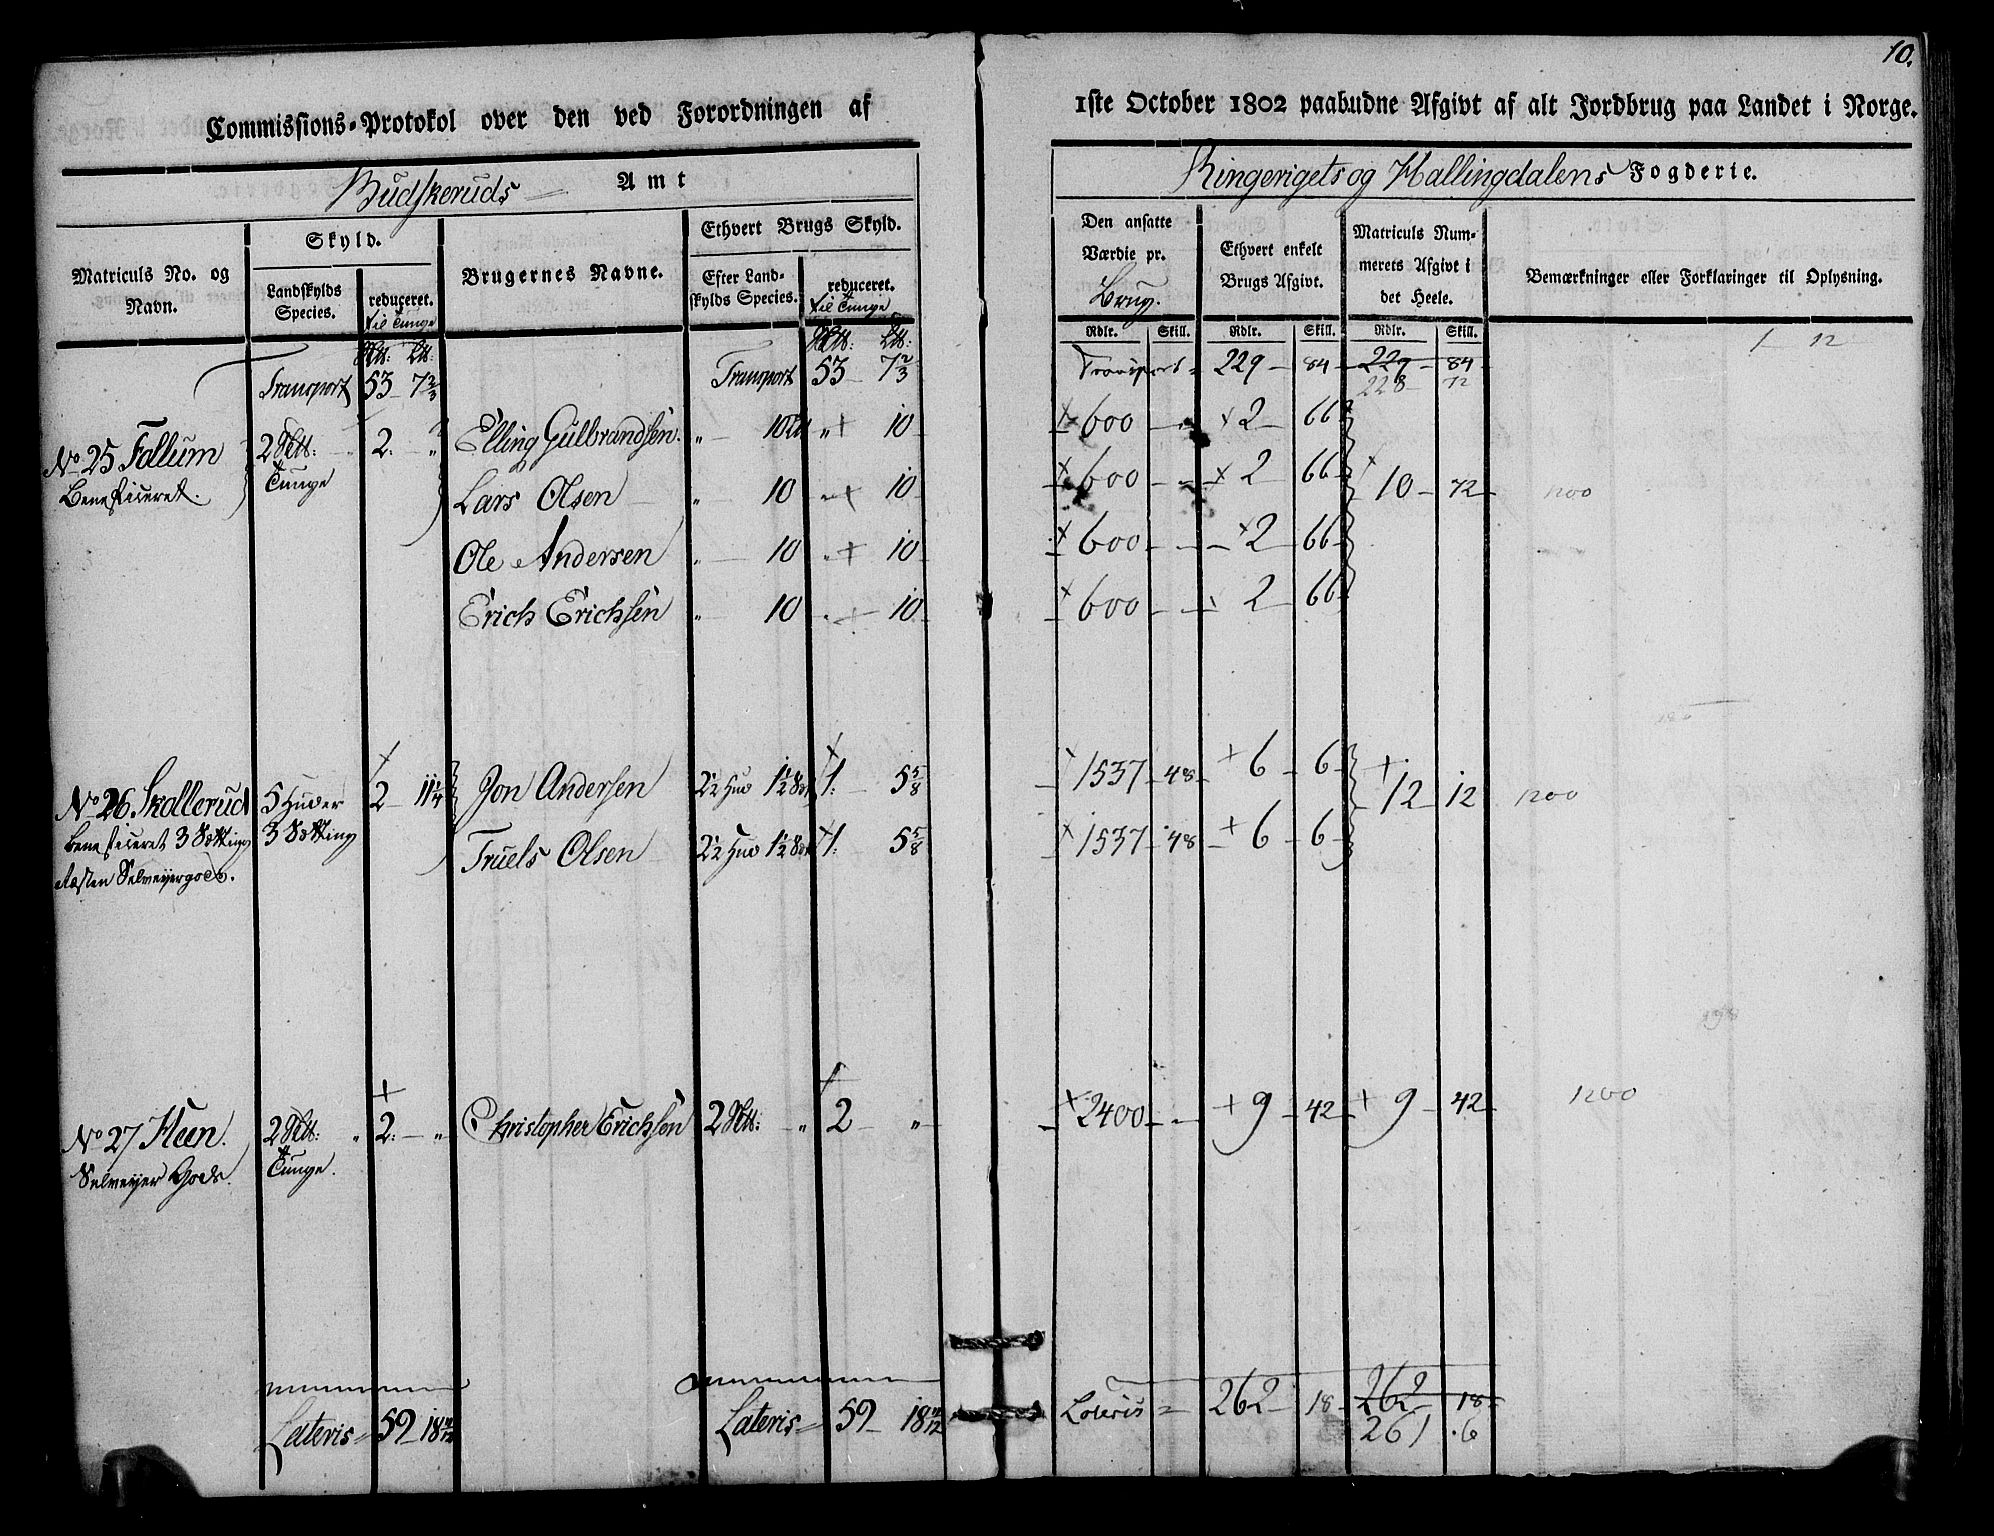 10.
Commissions-Protokol over den ved Forordningen af 1ste October 1802 paabudne Afgivt af alt Jordbrug paa Landet i Norge.
Budskeruds Amt
Ringerigets og Hallingdalens Fogderie.
Matriculs No. og Navn.
Skyld.
Landskylds Species.
reduceret. til Tunge
Brugernes Navne.
Ethvert Brugs Skyld.
Efter Landskylds Species.
reduceret. til Tunge
Den ansatte Værdie pr. Brug.
Ethvert enkelt Brugs Afgivt.
Matriculs Nummerets Afgivt i det Heele.
Bemærkninger eller Forklaringer til Oplysning.
Rdlr. Skill. Rdlr. Skill. Rdlr. Skill.
1 12
Transport 53 - 7 2/3 Transport 53 - 7 2/3 Transport = 229 - 84 - 229 - 84
228 72
No 25 Follum 2 2. - „ Elling Gulbrandsen. „ - 10 „ + 10 + 600 - + 2 - 66
Beneficeret. Tunge
Lars Olsen „ 10 „ + 10 + 600 - + 2 66 + 10 - 72 1200
Ole Andersen „ - 10 „ + 10 + 600 - - + 2 66
Erich Erichsen „ - 10 „ + 10 + 600 - + 2 66
No 26 Skollerud 5 Huder 2 - 11 1/4 Jon Andersen 2 1/2 Hud 1 1/2 1. - 5 5/8 + 1537 - 48 + 6 - 6
Beneficeret 3 Sætting 3 Sætting + 12 12 1200
Resten Selveyergods. Truels Olsen 2 1/2 Hud 1 1/2 1. 5 5/8 + 1537 - 48 + 6 - 6
No 27 Heen. 2 „ 2. - „ Christopher Erichsen 2 - „ 2 - „ + 2400 - + 9 - 42 + 9 - 42 1200
Selveyer Gods. Tunge.
Lateris = 59 - 18 11/12 Lateris = 59 - 18 11/12 Lateris = 262 - 18 - 262 - 18
261 . 6